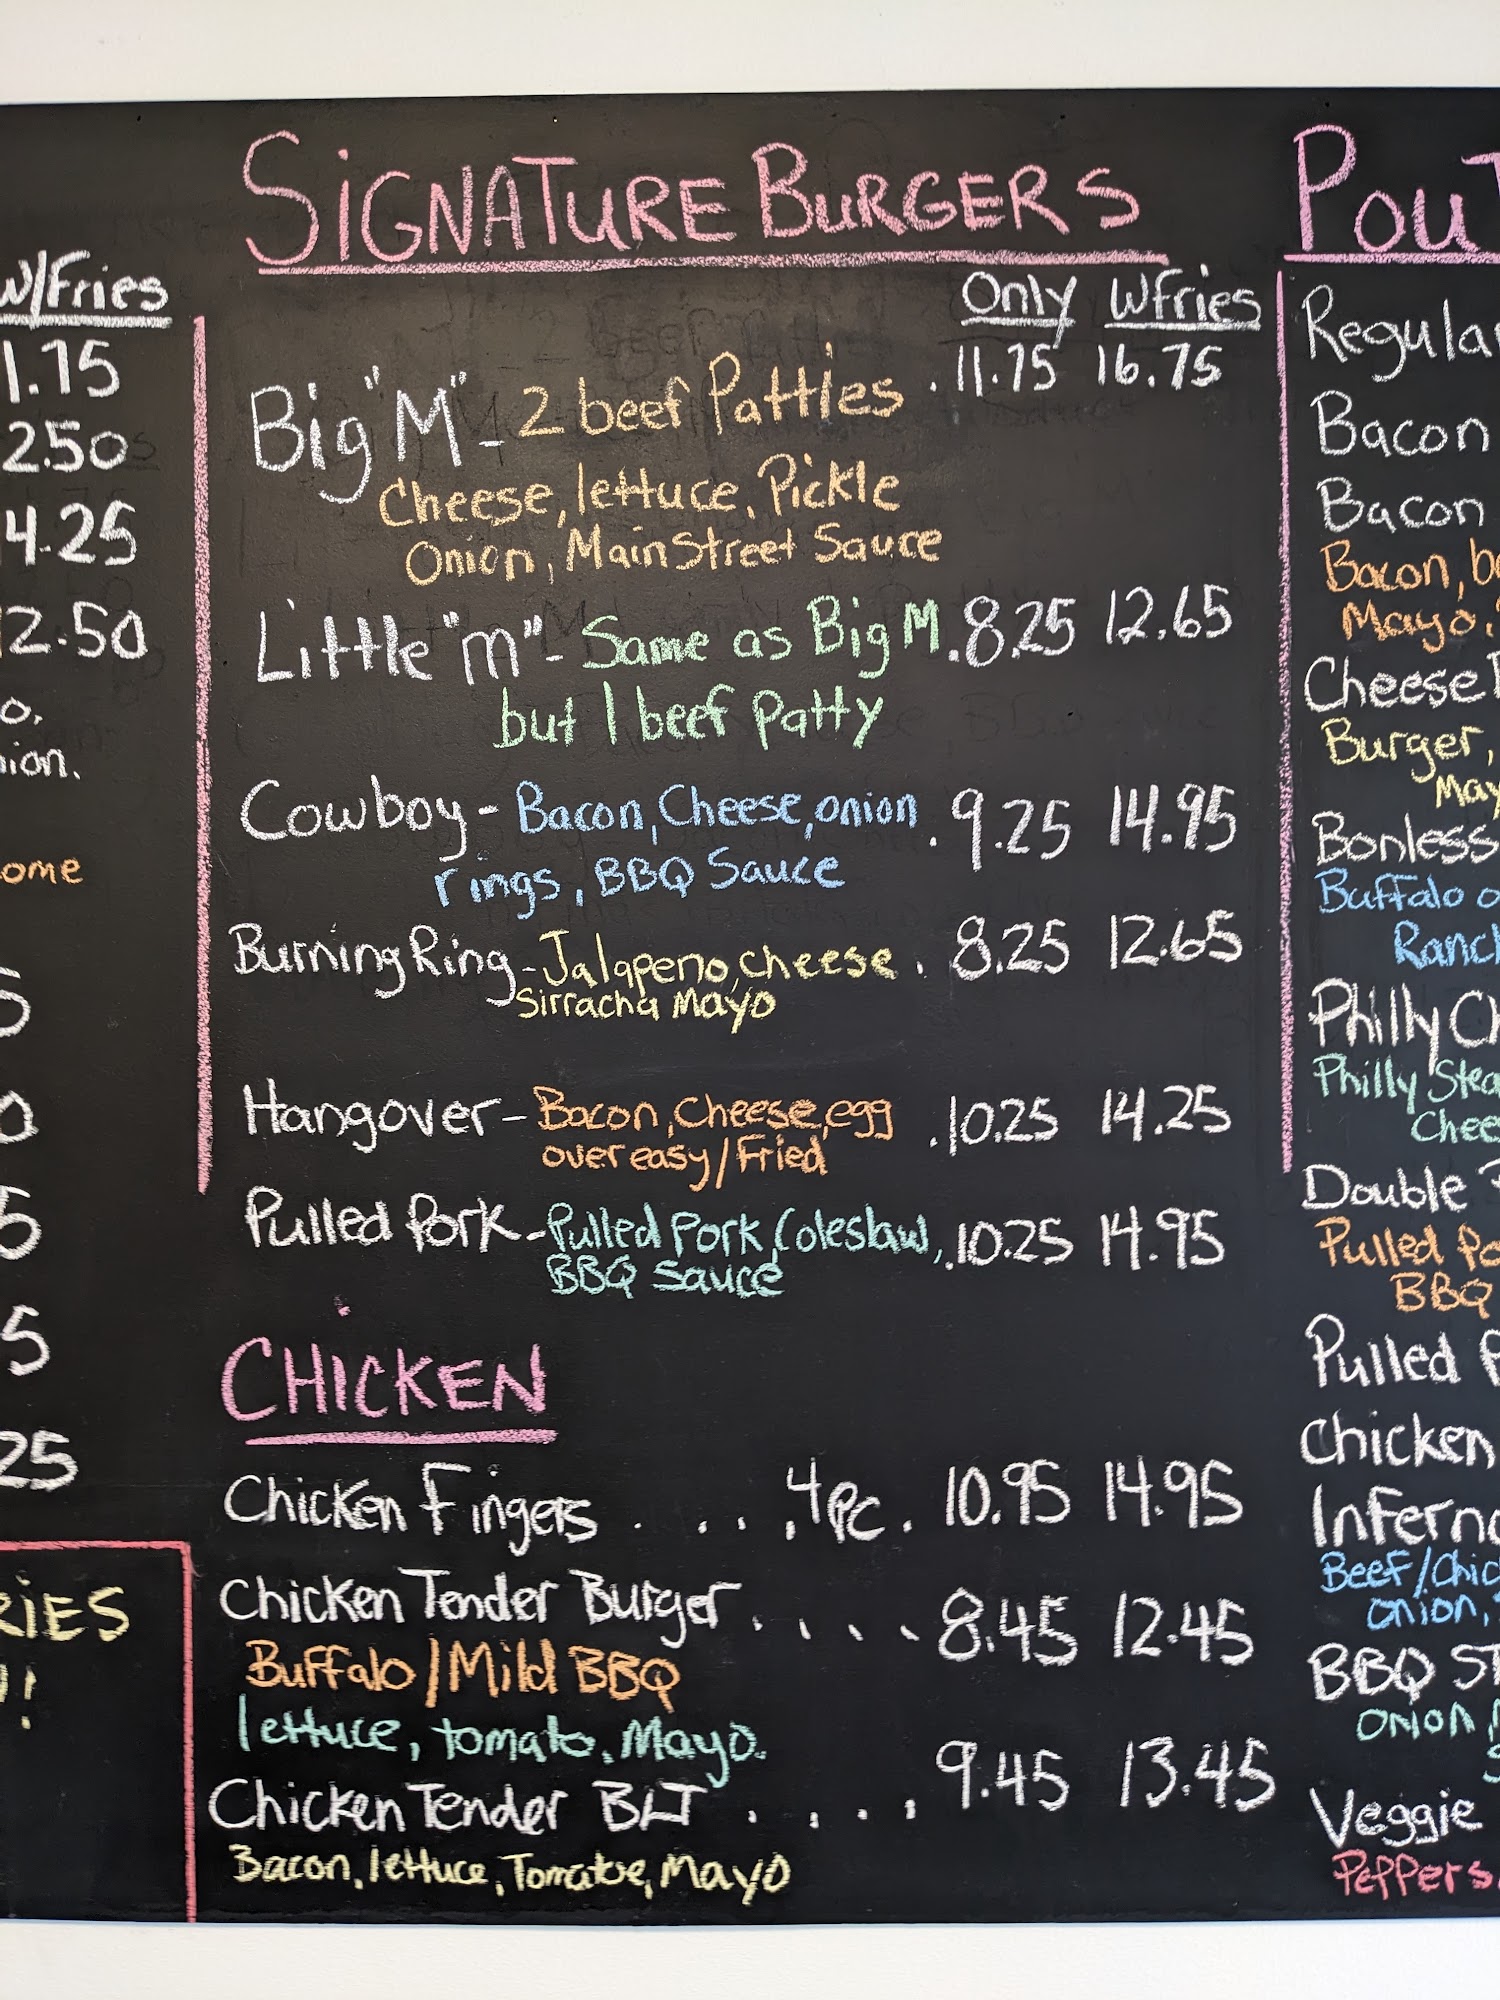 SIGNATURE BURGERS
Only W/Fries
Big "M" - 2 beef Patties . 11.75 16.75
Cheese, lettuce, Pickle
Onion, MainStreet Sauce
Little "m" - Same as Big M . 8.25 12.65
but 1 beef Patty
Cowboy - Bacon, Cheese, onion . 9.25 14.95
rings, BBQ Sauce
Burning Ring - Jalapeno, cheese . 8.25 12.65
Sirracha Mayo
Hangover - Bacon, Cheese, egg . 10.25 14.25
over easy/Fried
Pulled Pork - Pulled Pork, Coleslaw, . 10.25 14.95
BBQ sauce
CHICKEN
Chicken Fingers . . . . . 4pc . 10.95 14.95
Chicken Tender Burger . . . . 8.45 12.45
Buffalo/Mild BBQ
lettuce, tomato, Mayo.
Chicken Tender BLT . . . . 9.45 13.45
Bacon, lettuce, Tomatoe, Mayo
W/Fries
1.75
2.50
4.25
12.50
o.
nion.
ome
5
0
5
5
25
RIES
!
POUT
Regular
Bacon
Bacon
Bacon, be
Mayo.
Cheese
Burger,
May
Bonless
Buffalo o
Ranch
Philly Ch
Philly Stea
Chee
Double
Pulled Po
BBQ
Pulled P
Chicken
Inferno
Beef/Chic
onion,
BBQ ST
onion,
S
Veggie
Peppers,